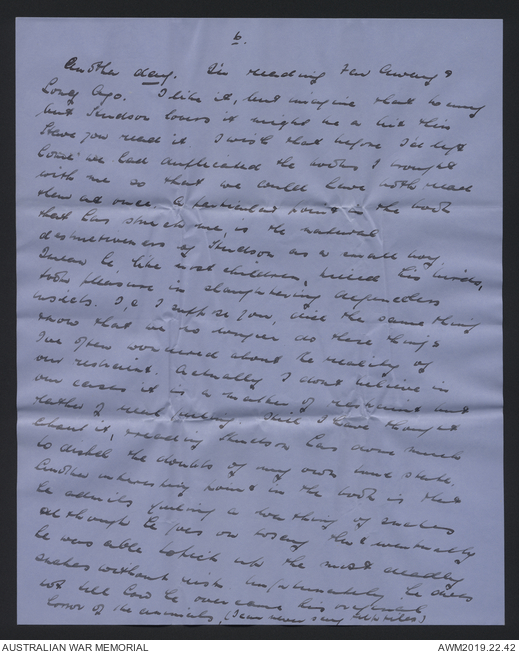 6.
Another day. I'm reading Far Away &
Long Ago. I like it, but imagine that to any
but Hudson lovers it might be a bit thin
Have you read it. I wish that before I'd left
home we had duplicated the books I brought
with me so that we could have both read
them at once. A particular point in the book
that has struck me, is the natural
destructiveness of Hudson as a small boy.
I mean he, like most children, killed his birds,
took pleasure in slaughtering defenceless
insects. I, & I suppose you, did the same thing
know that we no longer do these things
I've often wondered about the reality of
our restraint. Actually I don't believe in
our cases it is a matter of restraint but
rather of real feeling. Still I have thought
about it, & reading Hudson has done much
to dispel the doubts of my own mind
Another interesting point in the book is that
he admits having a loathing of snakes
although he goes on to say that eventually
he was able to pick up the most deadly
snakes without risk. Unfortunately he does
not tell how he overcame his original
horror of the animals, (I can never say reptiles)
AUSTRALIAN WAR MEMORIAL
AWM2019.22.42